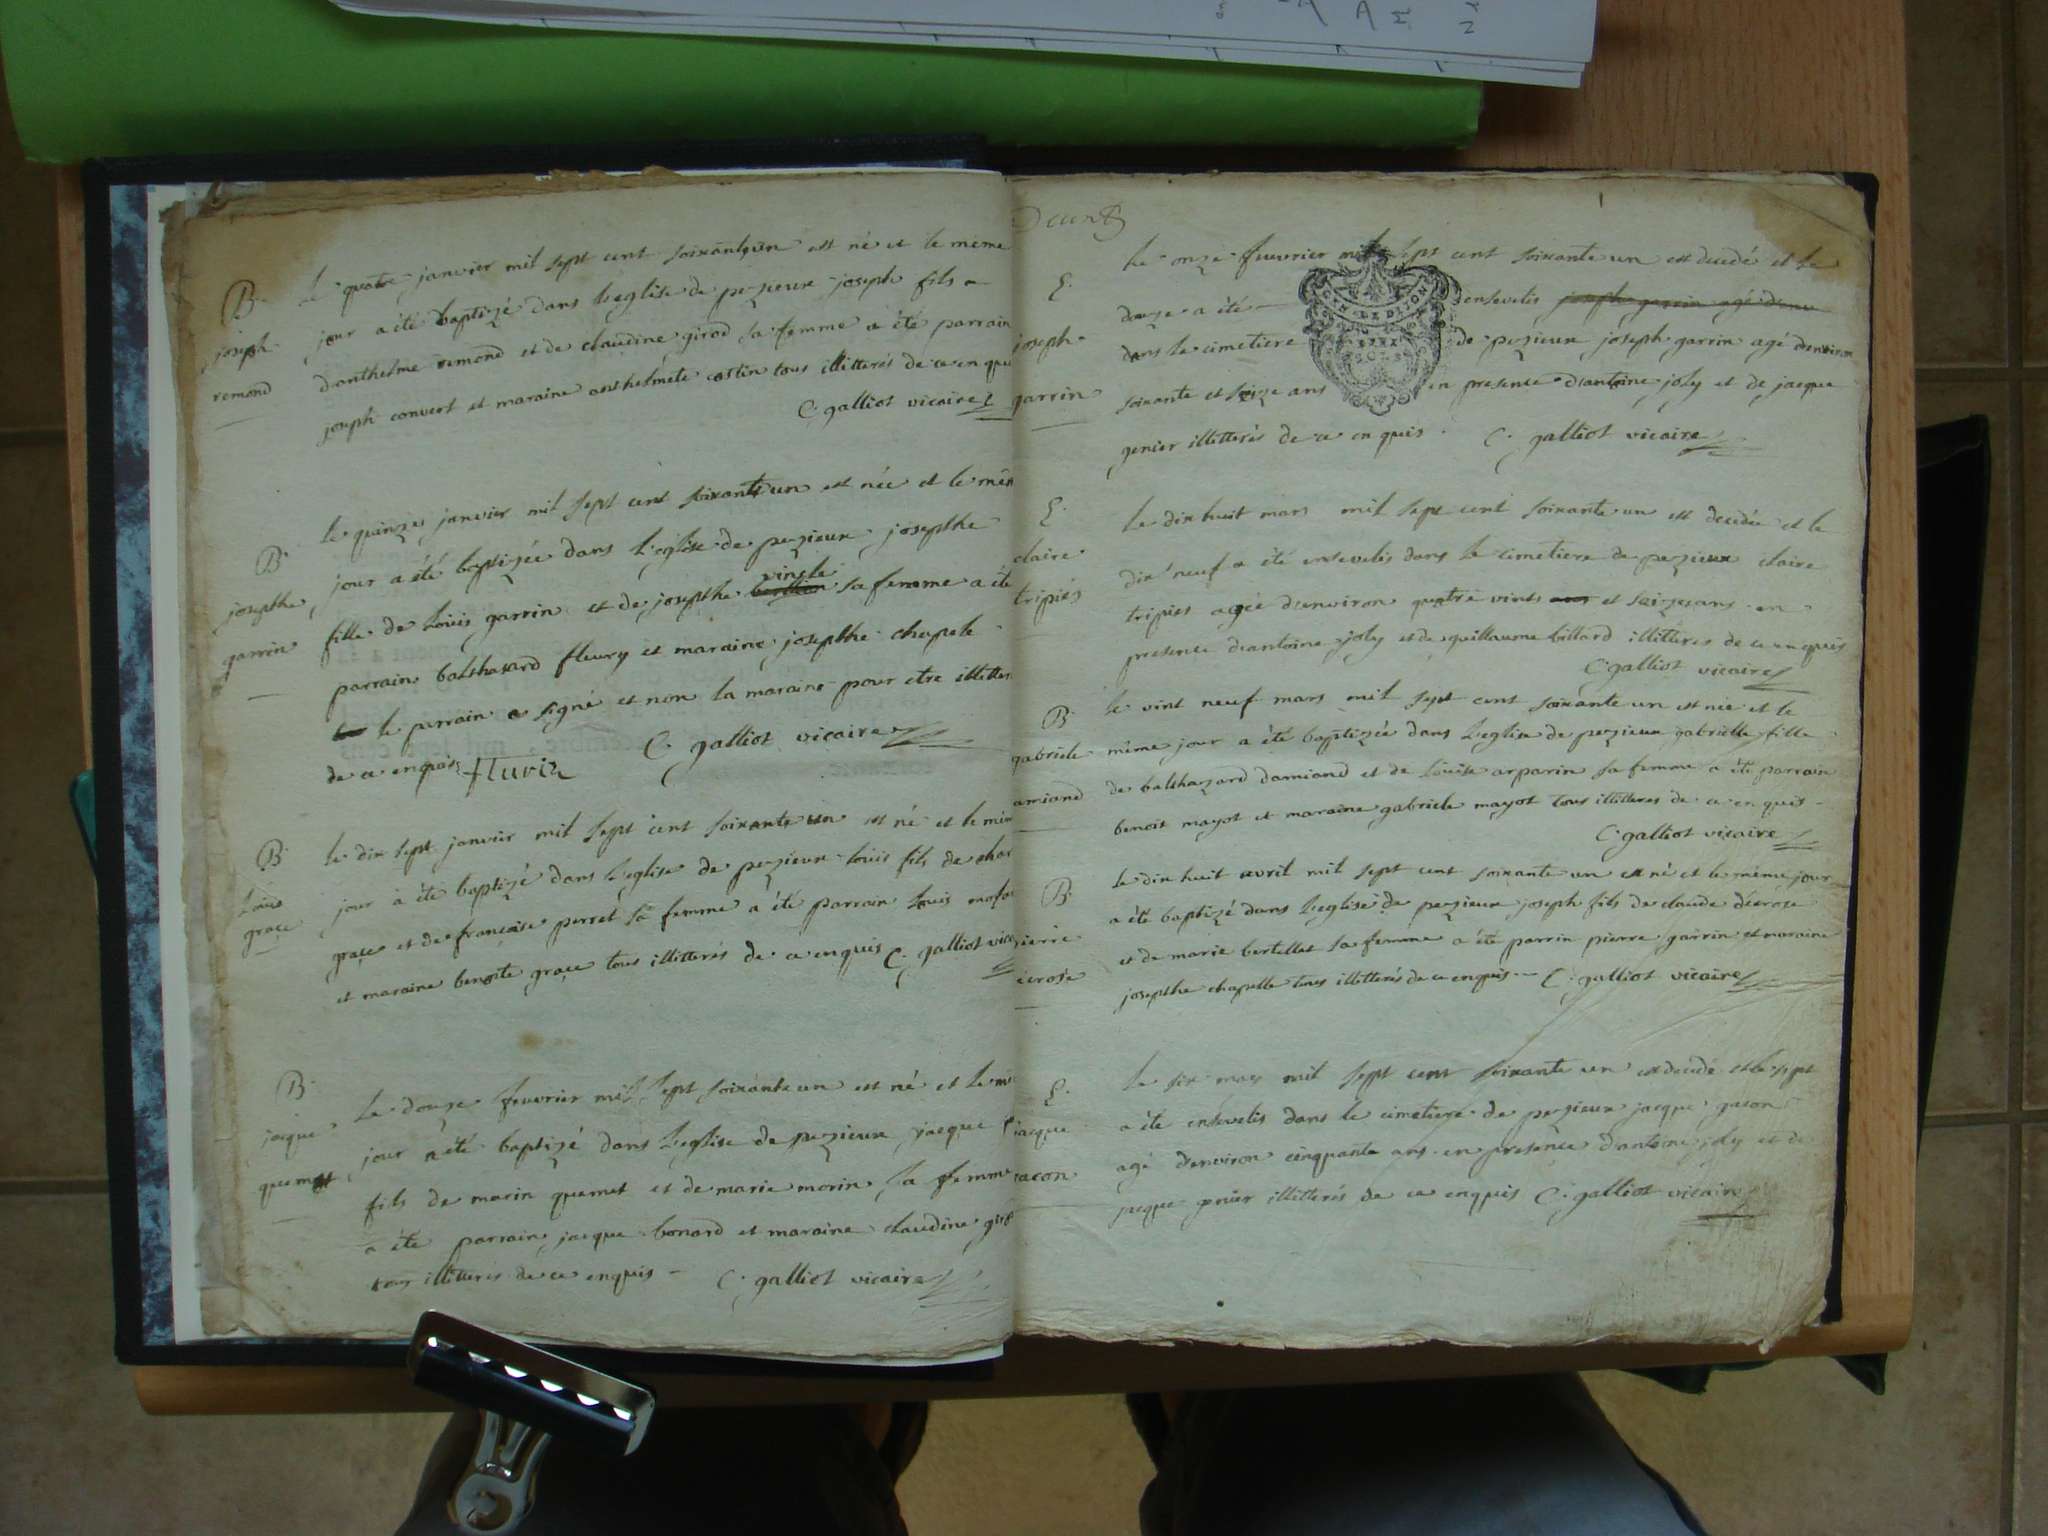 B
joseph
remond
le quatre janvier mil sept cent soixante un est né et le même
jour a été baptizé dans l'eglise de pezieux joseph fils
d'anthelme remond et de claudine girod sa femme a été parrain
joseph convert et maraine anthelmete costin tous illitterés de ce enquis
C. galliot vicaire
B
josepthe
garrin
le quinze janvier mil sept cent soixante un est née et le mêm
jour a été baptizée dans l'eglise de pezieux josepthe
vinste
fille de louis garrin et de josepthe sa femme a été
parrain balthazard fleury et maraine josepthe chapele
le parrain a signé et non la maraine pour etre illitter
de ce enquis fluria C. galliot vicaire
B
Louis
grace
le dix sept janvier mil sept cent soixante un est né et le mêm
jour a été baptizé dans l'eglise de pezieux louis fils de
grace et de françoise perret sa femme a été parrain louis
et maraine benoite grace tous illitterés de ce enquis C. galliot vica
B
jacque
quemet
le douze feuvrier mil sept soixante un est né et le m
jour a été baptizé dans l'eglise de pezieux jacque
fils de marin quemet et de marie morin sa femme
a été parrain jacque bonard et maraine claudine giro
tous illitterés de ce enquis C. galliot vicaire
E
joseph
garrin
le onze feuvrier mil sept cent soixante un est decedé et le
douze a été ensevelis joseph garrin agé d'env
dans le cimetiere de pezieux joseph garrin agé d'environ
soixante et seize ans en presence d'antoine joly et de jacque
genier illitterés de ce enquis C. galliot vicaire
E
claire
tripiés
le dix huit mars mil sept cent soixante un est decedée et le
dix neuf a été ensevelis dans le cimetiere de pezieux claire
tripiés agée d'environ quatre vints et seize ans en
presence d'antoine joly et de guillaume billard illitterés de ce enquis
C. galliot vicaire
B
gabriele
amiand
le vint neuf mars mil sept cent soixante un est née et le
même jour a été baptizée dans l'eglise de pezieux gabrielle fille
de balthazard damiand et de louise arparin sa femme a été parrain
benoit mayot et maraine gabriele mayot tous illitteres de ce enquis
C. galliot vicaire
B
pierre
ecrose
le dix huit avril mil sept cent soixante un est né et le même jour
a été baptizé dans l'eglise de pezieux joseph fils de claude décrose
et de marie bertellet sa femme a été parrin pierre garrin et maraine
josepthe chapelle tous illitterés de ce enquis C. galliot vicaire
E
jacque
gacon
le six may mil sept cent soixante un est decedé et le sept
a été ensevelis dans le cimetiere de pezieux jacque gacon
agé d'environ cinquante ans en presence d'antoine joly et de
jacque genier illitterés de ce enquis C. galliot vicaire